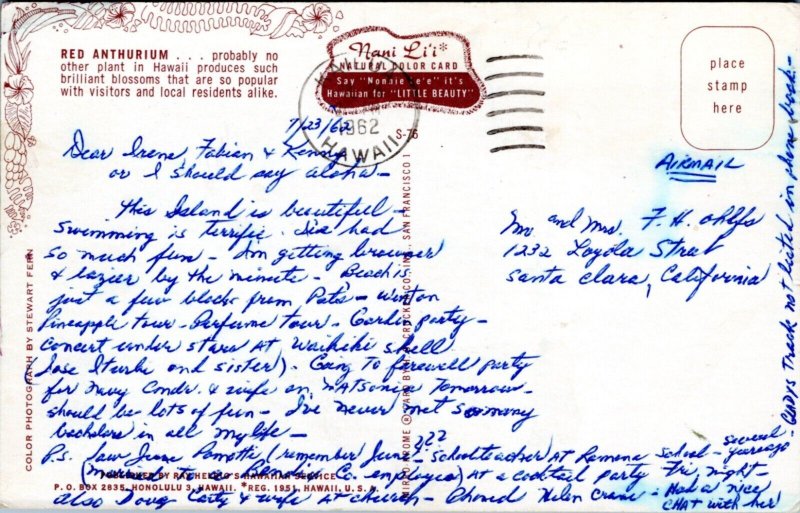 RED ANTHURIUM . . . probably no
other plant in Hawaii produces such
brilliant blossoms that are so popular
with visitors and local residents alike.
Nani Li'i*
NATURAL COLOR CARD
Say "Nonaie Le'e" it's
Hawaiian for "LITTLE BEAUTY"
place
stamp
here
1962
HAWAII
S-76
7/23/62
Dear Irene, Fabian & Kenny,
or I should say aloha -
This Island is beautiful -
Swimming is terrific. I've had
so much fun - I'm getting browner
& lazier by the minute - Beach is
just a few blocks from Pat's - went on
Pineapple tour - Perfume tour - Garden party -
concert under stars at Waikiki Shell
Jose Iturbi and sister). Going to farewell party
for Navy Comdr. & wife on Matsonia tomorrow -
should be lots of fun - I've never met so many
bachelors in all my life -
P.S. Saw June (remember June - schoolteacher at Ramona School - several years ago -
(married to Co. employee) At a cocktail party Fri. night -
also Doug & wife at church - Phoned Helen Crane - Had a nice
CHAT with her
???
AIRMAIL
Mr and Mrs. F. H. Ohlfs
1232 Loyola Street
Santa Clara, California
Gladys Track not listed in phone book -
COLOR PHOTOGRAPH BY STEWART FERN
MIRRO-KROME ® CARD BY H. S. CROCKER CO. INC., SAN FRANCISCO 1
PUBLISHED BY RAY HELBIG'S HAWAIIAN SERVICE
P. O. BOX 2835, HONOLULU 3, HAWAII. *REG. 1951, HAWAII, U. S. A.